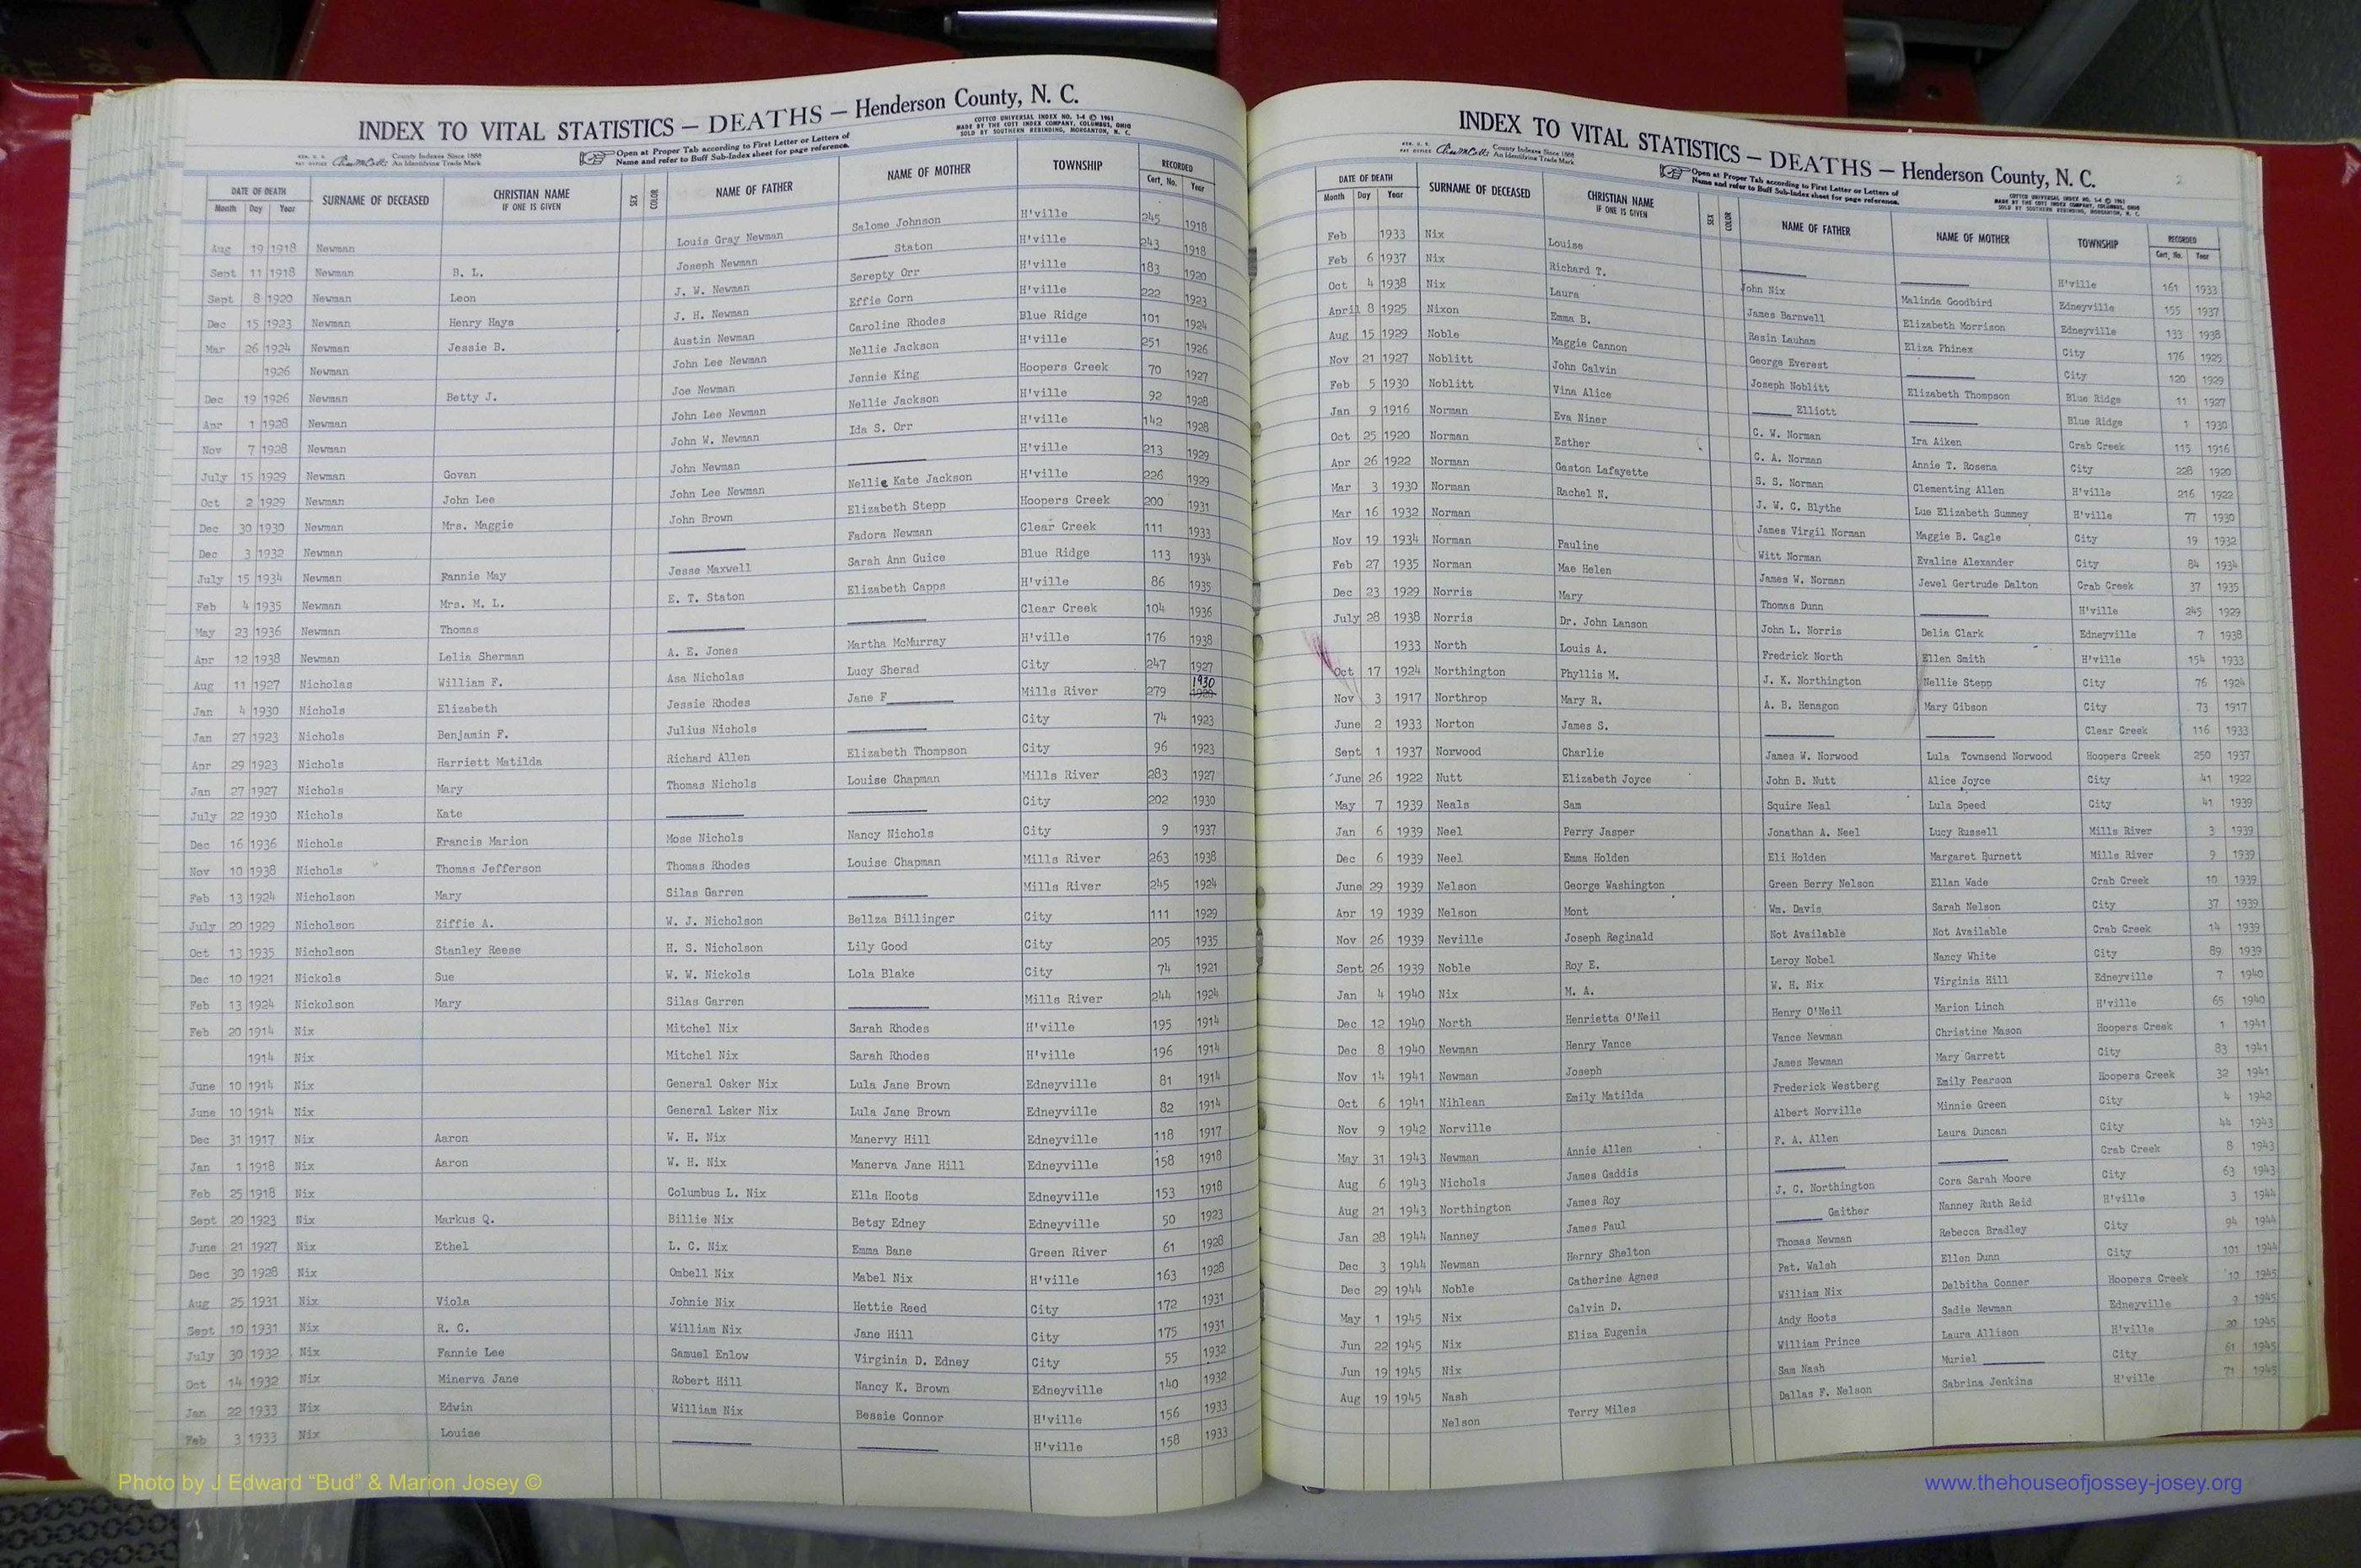 INDEX TO VITAL STATISTICS — DEATHS — Henderson County, N. C.
COTTCO UNIVERSAL INDEX NO. 1-4 © 1961
MADE BY THE COTT INDEX COMPANY, COLUMBUS, OHIO
SOLD BY SOUTHERN REBINDING, MORGANTON, N. C.
County Indexes Since 1888
An Identifying Trade Mark
Open at Proper Tab according to First Letter or Letters of
Name and refer to Buff Sub-Index sheet for page reference.
DATE OF DEATH SURNAME OF DECEASED CHRISTIAN NAME IF ONE IS GIVEN SEX COLOR NAME OF FATHER NAME OF MOTHER TOWNSHIP RECORDED
Month Day Year Cert. No. Year
Aug 19 1918 Newman Louis Gray Newman Salome Johnson H'ville 245 1918
Sept 11 1918 Newman B. L. Joseph Newman Staton H'ville 243 1918
Sept 8 1920 Newman Leon J. W. Newman Serepty Orr H'ville 183 1920
Dec 15 1923 Newman Henry Hays J. H. Newman Effie Corn H'ville 222 1923
Mar 26 1924 Newman Jessie B. Austin Newman Caroline Rhodes Blue Ridge 101 1924
1926 Newman John Lee Newman Nellie Jackson H'ville 251 1926
Dec 19 1926 Newman Betty J. Joe Newman Jennie King Hoopers Creek 70 1927
Apr 1 1928 Newman John Lee Newman Nellie Jackson H'ville 92 1928
Nov 7 1928 Newman John W. Newman Ida S. Orr H'ville 142 1928
July 15 1929 Newman Govan John Newman H'ville 213 1929
Oct 2 1929 Newman John Lee John Lee Newman Nellie Kate Jackson H'ville 226 1929
Dec 30 1930 Newman Mrs. Maggie John Brown Elizabeth Stepp Hoopers Creek 200 1931
Dec 3 1932 Newman Fadora Newman Clear Creek 111 1933
July 15 1934 Newman Fannie May Jesse Maxwell Sarah Ann Guice Blue Ridge 113 1934
Feb 4 1935 Newman Mrs. M. L. E. T. Staton Elizabeth Capps H'ville 86 1935
May 23 1936 Newman Thomas Clear Creek 104 1936
Apr 12 1938 Newman Lelia Sherman A. E. Jones Martha McMurray H'ville 176 1938
Aug 11 1927 Nicholas William F. Asa Nicholas Lucy Sherad City 247 1927
Jan 4 1930 Nichols Elizabeth Jessie Rhodes Jane F Mills River 279 1929 1930
Jan 27 1923 Nichols Benjamin F. Julius Nichols City 74 1923
Apr 29 1923 Nichols Harriett Matilda Richard Allen Elizabeth Thompson City 96 1923
Jan 27 1927 Nichols Mary Thomas Nichols Louise Chapman Mills River 283 1927
July 22 1930 Nichols Kate City 202 1930
Dec 16 1936 Nichols Francis Marion Mose Nichols Nancy Nichols City 9 1937
Nov 10 1938 Nichols Thomas Jefferson Thomas Rhodes Louise Chapman Mills River 263 1938
Feb 13 1924 Nicholson Mary Silas Garren Mills River 245 1924
July 20 1929 Nicholson Ziffie A. W. J. Nicholson Bellza Billinger City 111 1929
Oct 13 1935 Nicholson Stanley Reese H. S. Nicholson Lily Good City 205 1935
Dec 10 1921 Nickols Sue W. W. Nickols Lola Blake City 74 1921
Feb 13 1924 Nickolson Mary Silas Garren Mills River 244 1924
Feb 20 1914 Nix Mitchel Nix Sarah Rhodes H'ville 195 1914
1914 Nix Mitchel Nix Sarah Rhodes H'ville 196 1914
June 10 1914 Nix General Oaker Nix Lula Jane Brown Edneyville 81 1914
June 10 1914 Nix General Laker Nix Lula Jane Brown Edneyville 82 1914
Dec 31 1917 Nix Aaron W. H. Nix Manervy Hill Edneyville 118 1917
Jan 1 1918 Nix Aaron W. H. Nix Manerva Jane Hill Edneyville 158 1918
Feb 25 1918 Nix Columbus L. Nix Ella Hoots Edneyville 153 1918
Sept 20 1923 Nix Markus Q. Billie Nix Betsy Edney Edneyville 50 1923
June 21 1927 Nix Ethel L. C. Nix Emma Bane Green River 61 1928
Dec 30 1928 Nix Ombell Nix Mabel Nix H'ville 163 1928
Aug 25 1931 Nix Viola Johnie Nix Hettie Reed City 172 1931
Sept 10 1931 Nix R. C. William Nix Jane Hill City 175 1931
July 30 1932 Nix Fannie Lee Samuel Enlow Virginia D. Edney City 55 1932
Oct 14 1932 Nix Minerva Jane Robert Hill Nancy K. Brown Edneyville 140 1932
Jan 22 1933 Nix Edwin William Nix Bessie Connor H'ville 156 1933
Feb 3 1933 Nix Louise H'ville 158 1933
INDEX TO VITAL STATISTICS — DEATHS — Henderson County, N. C.
County Indexes Since 1888
An Identifying Trade Mark
Open at Proper Tab according to First Letter or Letters of
Name and refer to Buff Sub-Index sheet for page reference.
COTTCO UNIVERSAL INDEX NO. 1-4 © 1961
MADE BY THE COTT INDEX COMPANY, COLUMBUS, OHIO
SOLD BY SOUTHERN REBINDING, MORGANTON, N. C.
DATE OF DEATH SURNAME OF DECEASED CHRISTIAN NAME IF ONE IS GIVEN SEX COLOR NAME OF FATHER NAME OF MOTHER TOWNSHIP RECORDED
Month Day Year Cert. No. Year
Feb 1933 Nix Louise H'ville 161 1933
Feb 6 1937 Nix Richard T. John Nix Malinda Goodbird Edneyville 155 1937
Oct 4 1938 Nix Laura James Barnwell Elizabeth Morrison Edneyville 133 1938
April 8 1925 Nixon Emma B. Resin Lauham Eliza Phinex City 176 1925
Aug 15 1929 Noble Maggie Cannon George Everest City 120 1929
Nov 21 1927 Noblitt John Calvin Joseph Noblitt Elizabeth Thompson Blue Ridge 11 1927
Feb 5 1930 Noblitt Vina Alice Elliott Blue Ridge 1 1930
Jan 9 1916 Norman Eva Niner C. W. Norman Ira Aiken Crab Creek 115 1916
Oct 25 1920 Norman Esther C. A. Norman Annie T. Rosena City 228 1920
Apr 26 1922 Norman Gaston Lafayette S. S. Norman Clementing Allen H'ville 216 1922
Mar 3 1930 Norman Rachel N. J. W. C. Blythe Lue Elizabeth Summey H'ville 77 1930
Mar 16 1932 Norman James Virgil Norman Maggie B. Cagle City 19 1932
Nov 19 1934 Norman Pauline Witt Norman Evaline Alexander City 84 1934
Feb 27 1935 Norman Mae Helen James W. Norman Jewel Gertrude Dalton Crab Creek 37 1935
Dec 23 1929 Norris Mary Thomas Dunn H'ville 245 1929
July 28 1938 Norris Dr. John Lanson John L. Norris Delia Clark Edneyville 7 1938
1933 North Louis A. Fredrick North Ellen Smith H'ville 154 1933
Oct 17 1924 Northington Phyllis M. J. K. Northington Nellie Stepp City 76 1924
Nov 3 1917 Northrop Mary R. A. B. Henagon Mary Gibson City 73 1917
June 2 1933 Norton James S. Clear Creek 116 1933
Sept 1 1937 Norwood Charlie James W. Norwood Lula Townsend Norwood Hoopers Creek 250 1937
June 26 1922 Nutt Elizabeth Joyce John B. Nutt Alice Joyce City 41 1922
May 7 1939 Neals Sam Squire Neal Lula Speed City 41 1939
Jan 6 1939 Neel Perry Jasper Jonathan A. Neel Lucy Russell Mills River 3 1939
Dec 6 1939 Neel Emma Holden Eli Holden Margaret Burnett Mills River 9 1939
June 29 1939 Nelson George Washington Green Berry Nelson Ellan Wade Crab Creek 10 1939
Apr 19 1939 Nelson Mont Wm. Davis Sarah Nelson City 37 1939
Nov 26 1939 Neville Joseph Reginald Not Available Not Available Crab Creek 14 1939
Sept 26 1939 Noble Roy E. Leroy Nobel Nancy White City 89 1939
Jan 4 1940 Nix M. A. W. H. Nix Virginia Hill Edneyville 7 1940
Dec 12 1940 North Henrietta O'Neil Henry O'Neil Marion Linch H'ville 65 1940
Dec 8 1940 Newman Henry Vance Vance Newman Christine Mason Hoopers Creek 1 1941
Nov 14 1941 Newman Joseph James Newman Mary Garrett City 83 1941
Oct 6 1941 Nihlean Emily Matilda Frederick Westberg Emily Pearson Hoopers Creek 32 1941
Nov 9 1942 Norville Albert Norville Minnie Green City 4 1942
May 31 1943 Newman Annie Allen F. A. Allen Laura Duncan City 44 1943
Aug 6 1943 Nichols James Gaddis Crab Creek 8 1943
Aug 21 1943 Northington James Roy J. C. Northington Cora Sarah Moore City 63 1943
Jan 28 1944 Nanney James Paul Gaither Nanney Ruth Reid H'ville 3 1944
Dec 3 1944 Newman Hernry Shelton Thomas Newman Rebecca Bradley City 94 1944
Dec 29 1944 Noble Catherine Agnes Pat. Walsh Ellen Dunn City 101 1944
May 1 1945 Nix Calvin D. William Nix Delbitha Conner Hoopers Creek 10 1945
Jun 22 1945 Nix Eliza Eugenia Andy Hoots Sadie Newman Edneyville 1945
Jun 19 1945 Nix William Prince Laura Allison H'ville 20 1945
Aug 19 1945 Nash Sam Nash Muriel City 61 1945
Nelson Terry Miles Dallas F. Nelson Sabrina Jenkins H'ville 71 1945
Photo by J Edward “Bud” & Marion Josey ©
www.thehouseofjossey-josey.org